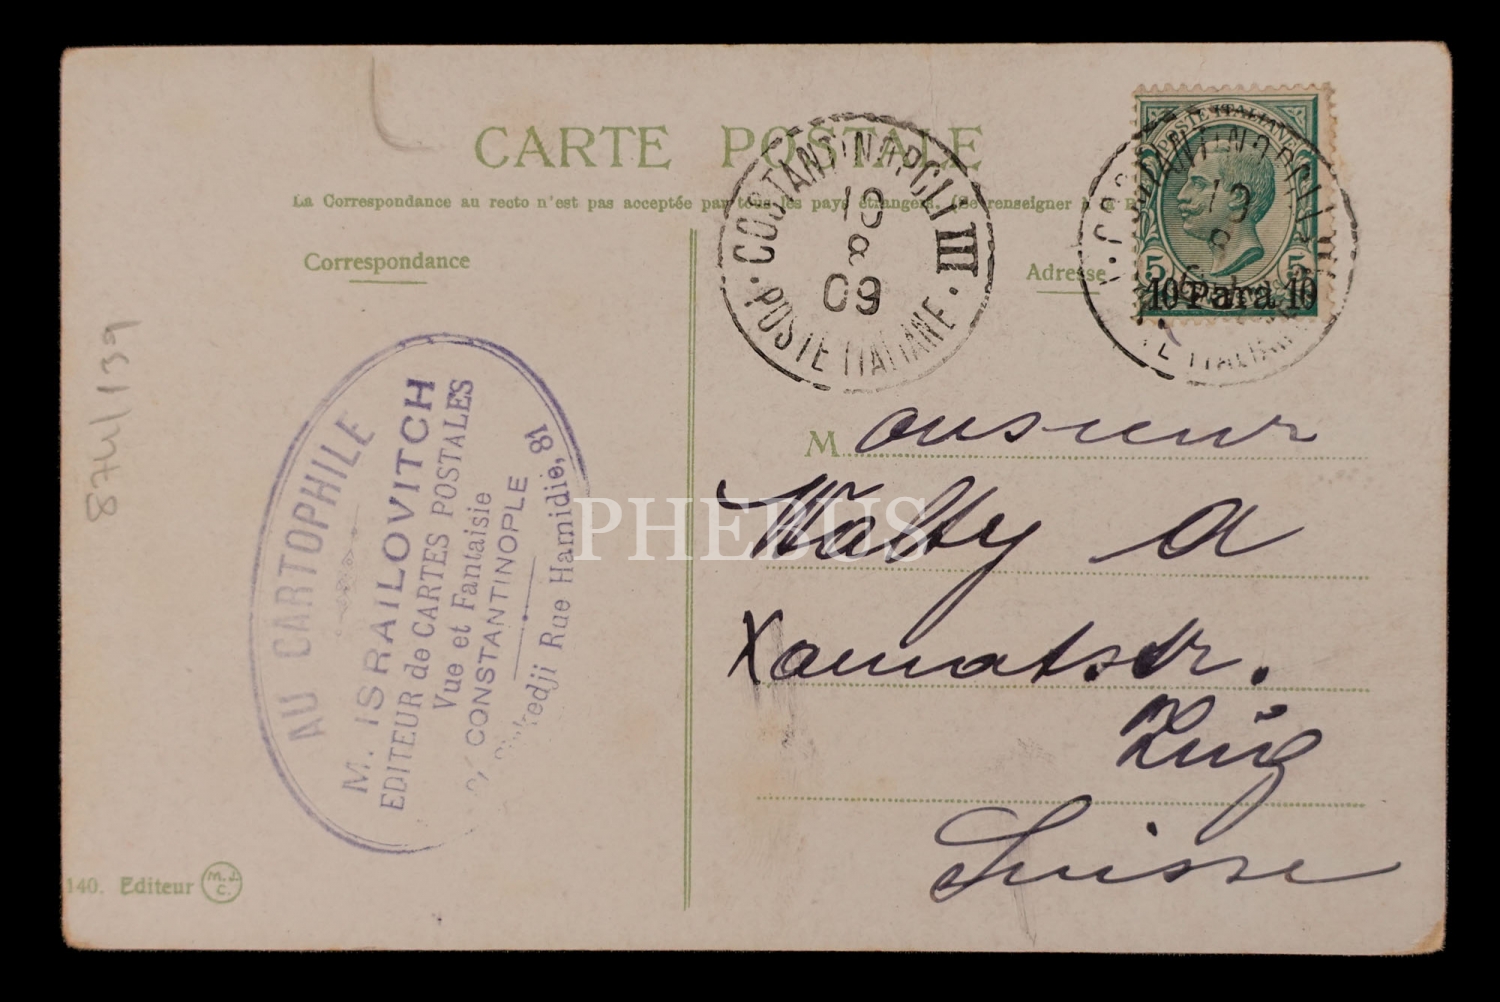 CARTE POSTALE
La Correspondance au recto n'est pas acceptée par tous les pays étrangers. (Se renseigner à la
Correspondance
Adresse
COSTANTINOPOLI III
10
8
09
POSTE ITALIANE
POSTE ITALIANE
5 5
10 Para 10
874/139
AU CARTOPHILE
M. ISRAILOVITCH
EDITEUR de CARTES POSTALES
Vue et Fantaisie
CONSTANTINOPLE
Sirkedji Rue Hamidié, 81
PHEBUS
Monsieur
Walty A
Zug
Suisse
140. Editeur M. J. C.